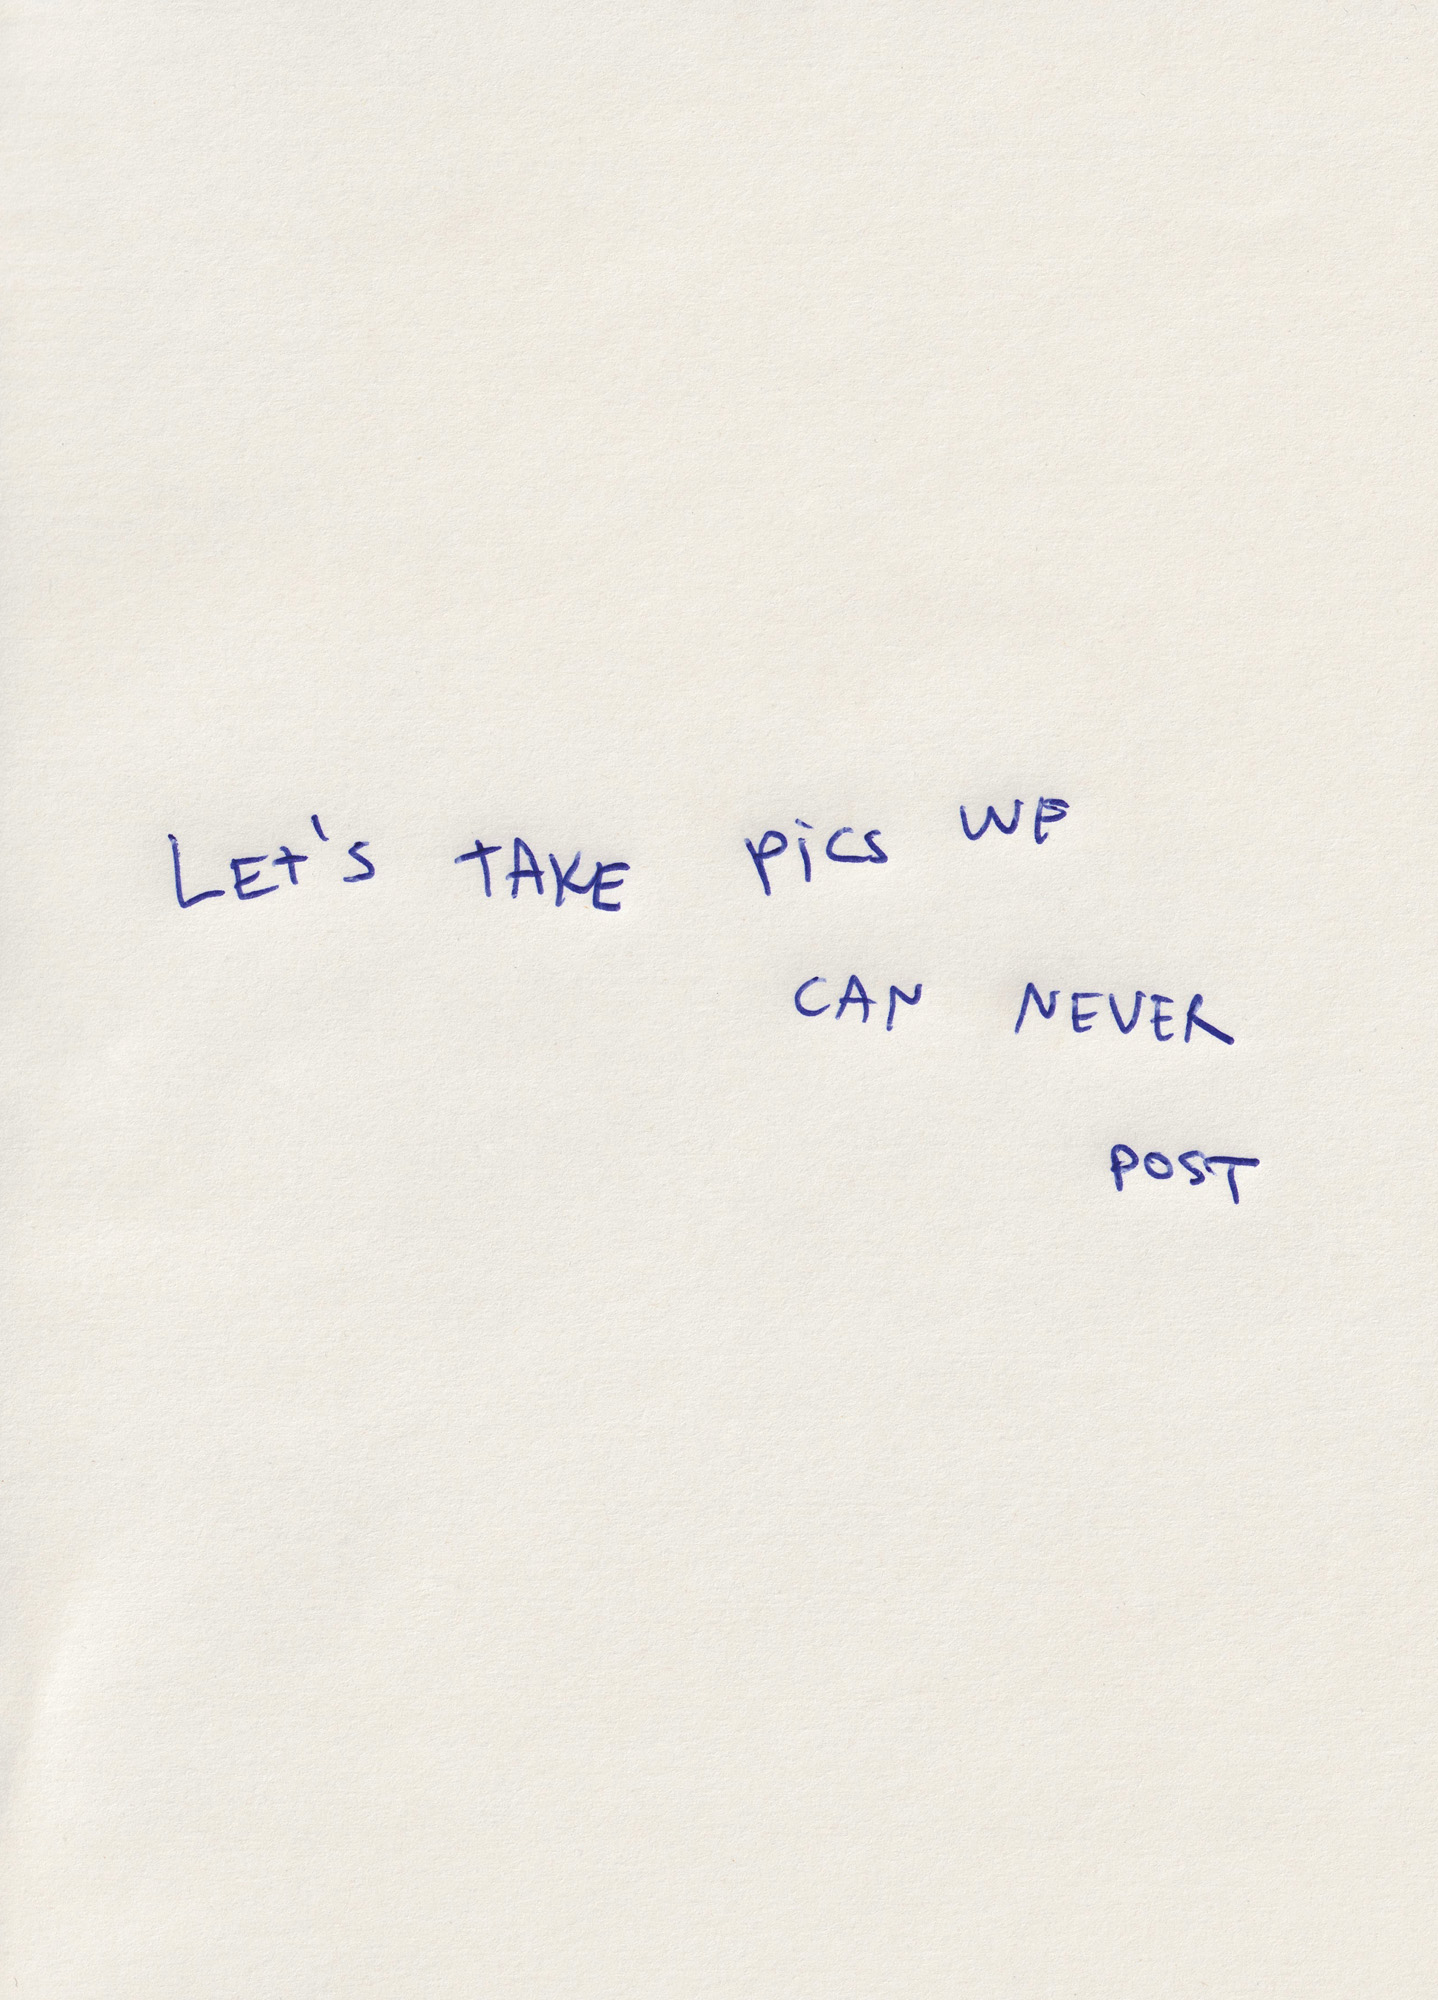 LEt's tAKE pics WE
CAN NEVER
POST